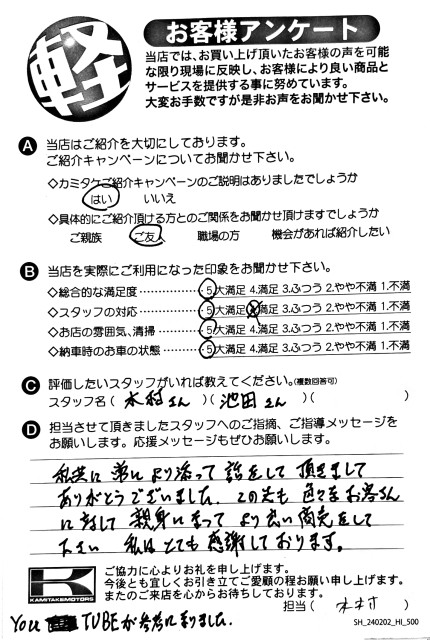 軽
お客様アンケート
当店では、お買い上げ頂いたお客様の声を可能
な限り現場に反映し、お客様により良い商品と
サービスを提供する事に努めています。
大変お手数ですが是非お声をお聞かせ下さい。
A 当店はご紹介を大切にしております。
ご紹介キャンペーンについてお聞かせ下さい。
◇カミタケご紹介キャンペーンのご説明はありましたでしょうか
はい いいえ
◇具体的にご紹介頂ける方とのご関係をお聞かせ頂けますでしょうか
ご親族 ご友人 職場の方 機会があれば紹介したい
B 当店を実際にご利用になった印象をお聞かせ下さい。
◇総合的な満足度………… 5大満足 4.満足 3.ふつう 2.やや不満 1.不満
◇スタッフの対応………… 5大満足 4.満足 3.ふつう 2.やや不満 1.不満
◇お店の雰囲気、清掃……… 5大満足 4.満足 3.ふつう 2.やや不満 1.不満
◇納車時のお車の状態……… 5大満足 4.満足 3.ふつう 2.やや不満 1.不満
C 評価したいスタッフがいれば教えてください。(複数回答可)
スタッフ名( 木村さん )( 池田さん )( )
D 担当させて頂きましたスタッフへのご指摘、ご指導メッセージを
お願いします。応援メッセージもぜひお願いします。
私共に常により添って話をして頂きまして
ありがとうございました。この先も色々なお客さん
に対して親身になってより良い商売をして
下さい 私はとても感謝しております。
KAMITAKEMOTORS
ご協力に心よりお礼を申し上げます。
今後とも宜しくお引き立てご愛顧の程お願い申し上げます。
またのご来店を心からお待ちしております。
担当( 木村 )
You TUBEが参考になりました。
SH_240202_HI_500